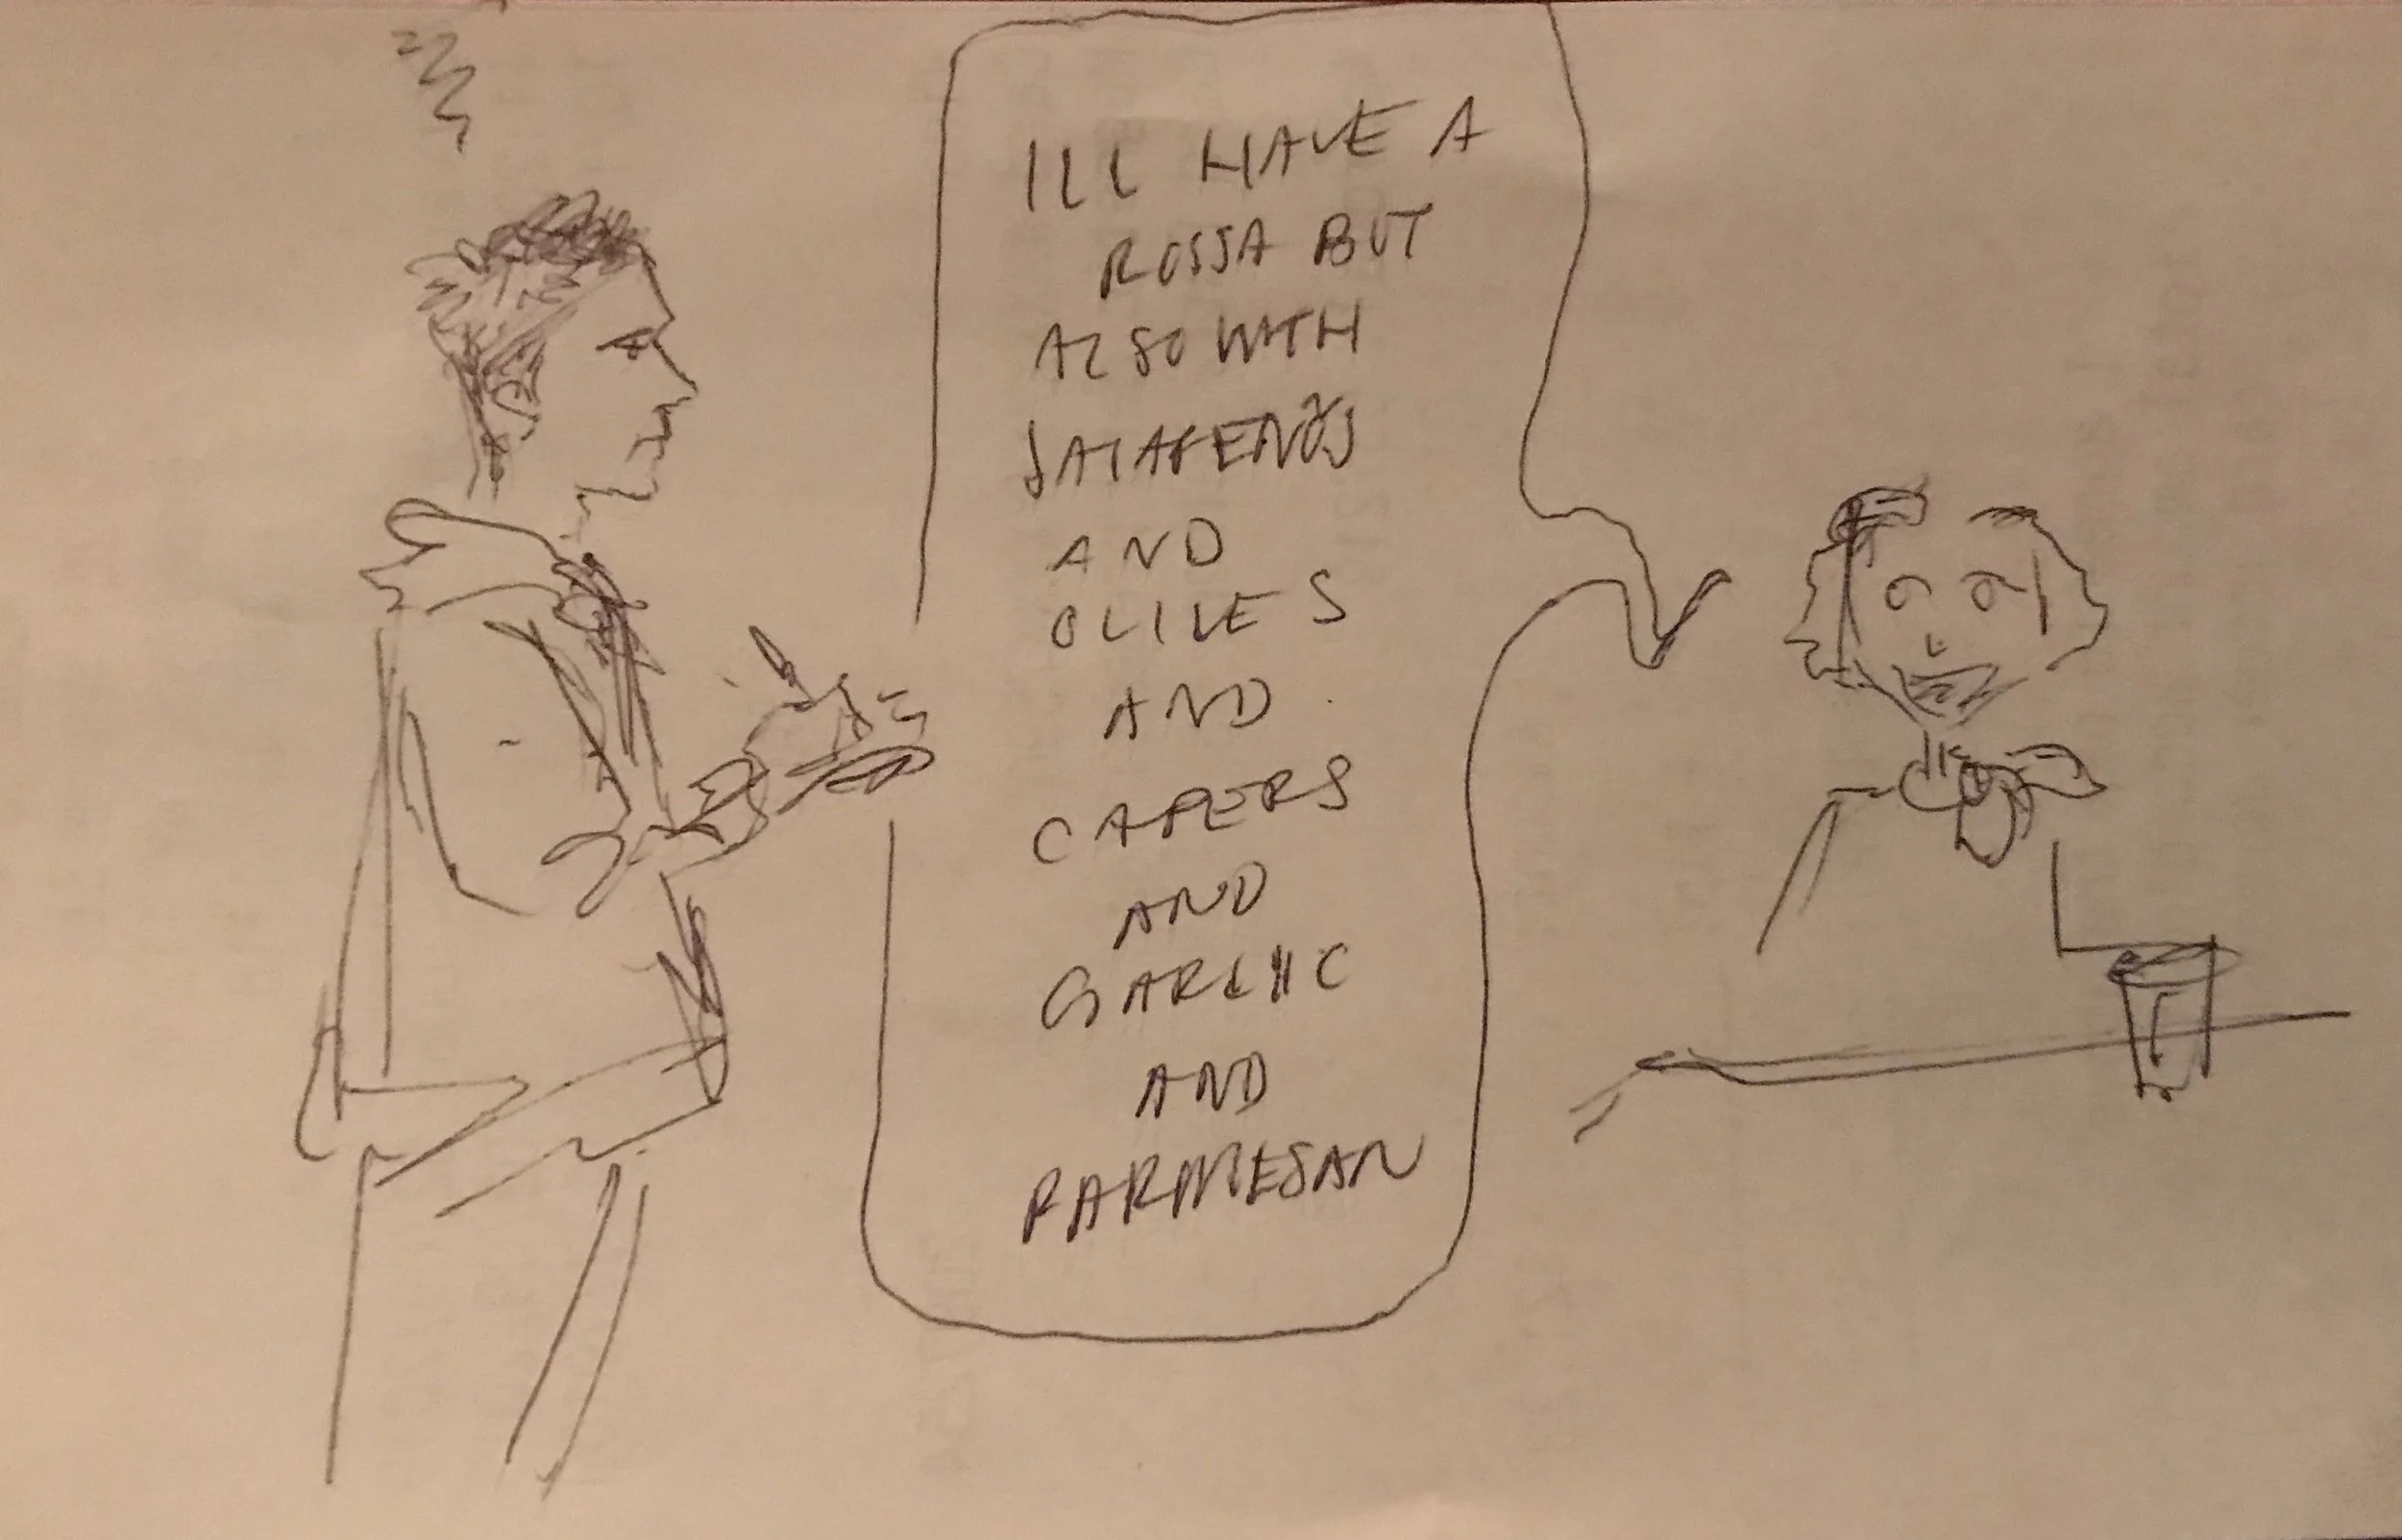 ILL HAVE A
ROSSA BUT
ALSO WITH
JALAPEÑOS
AND
OLIVES
AND
CAPERS
AND
GARLIC
AND
PARMESAN